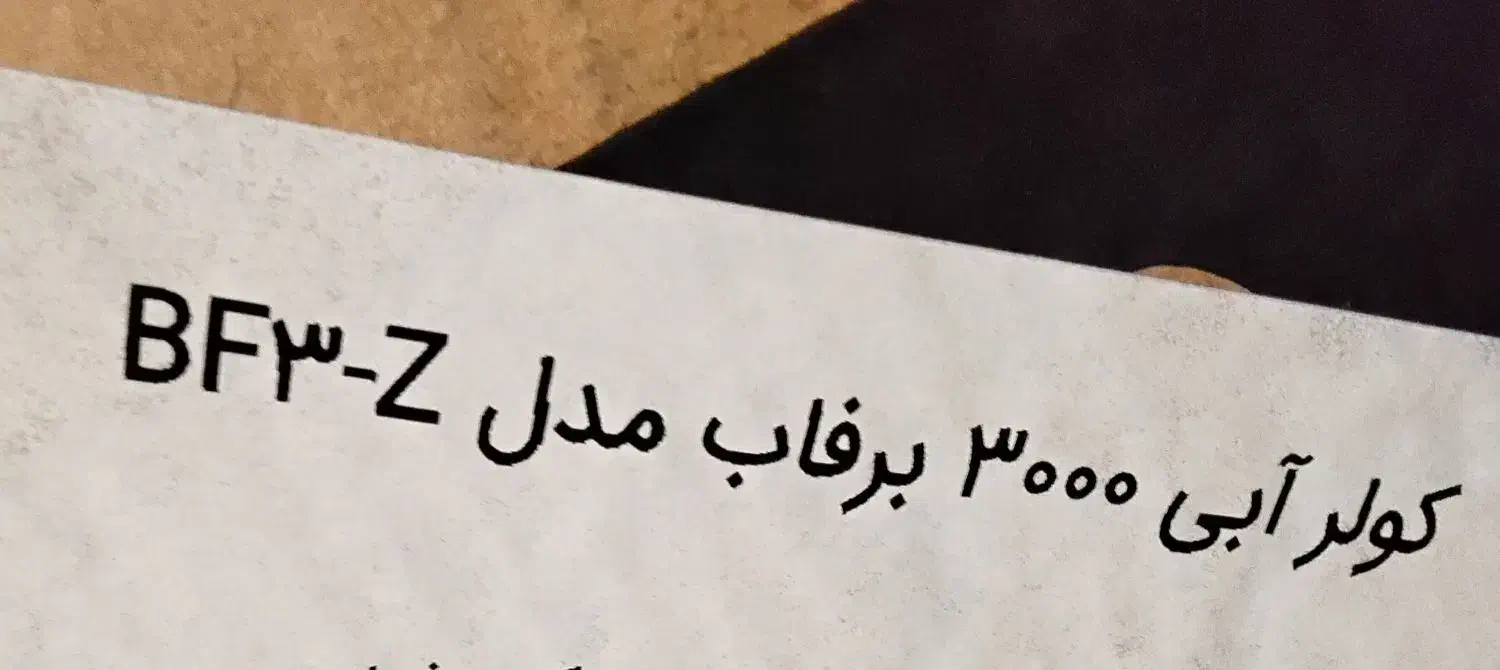 کولر آبی ۳۰۰۰ برفاب مدل BF۳-Z